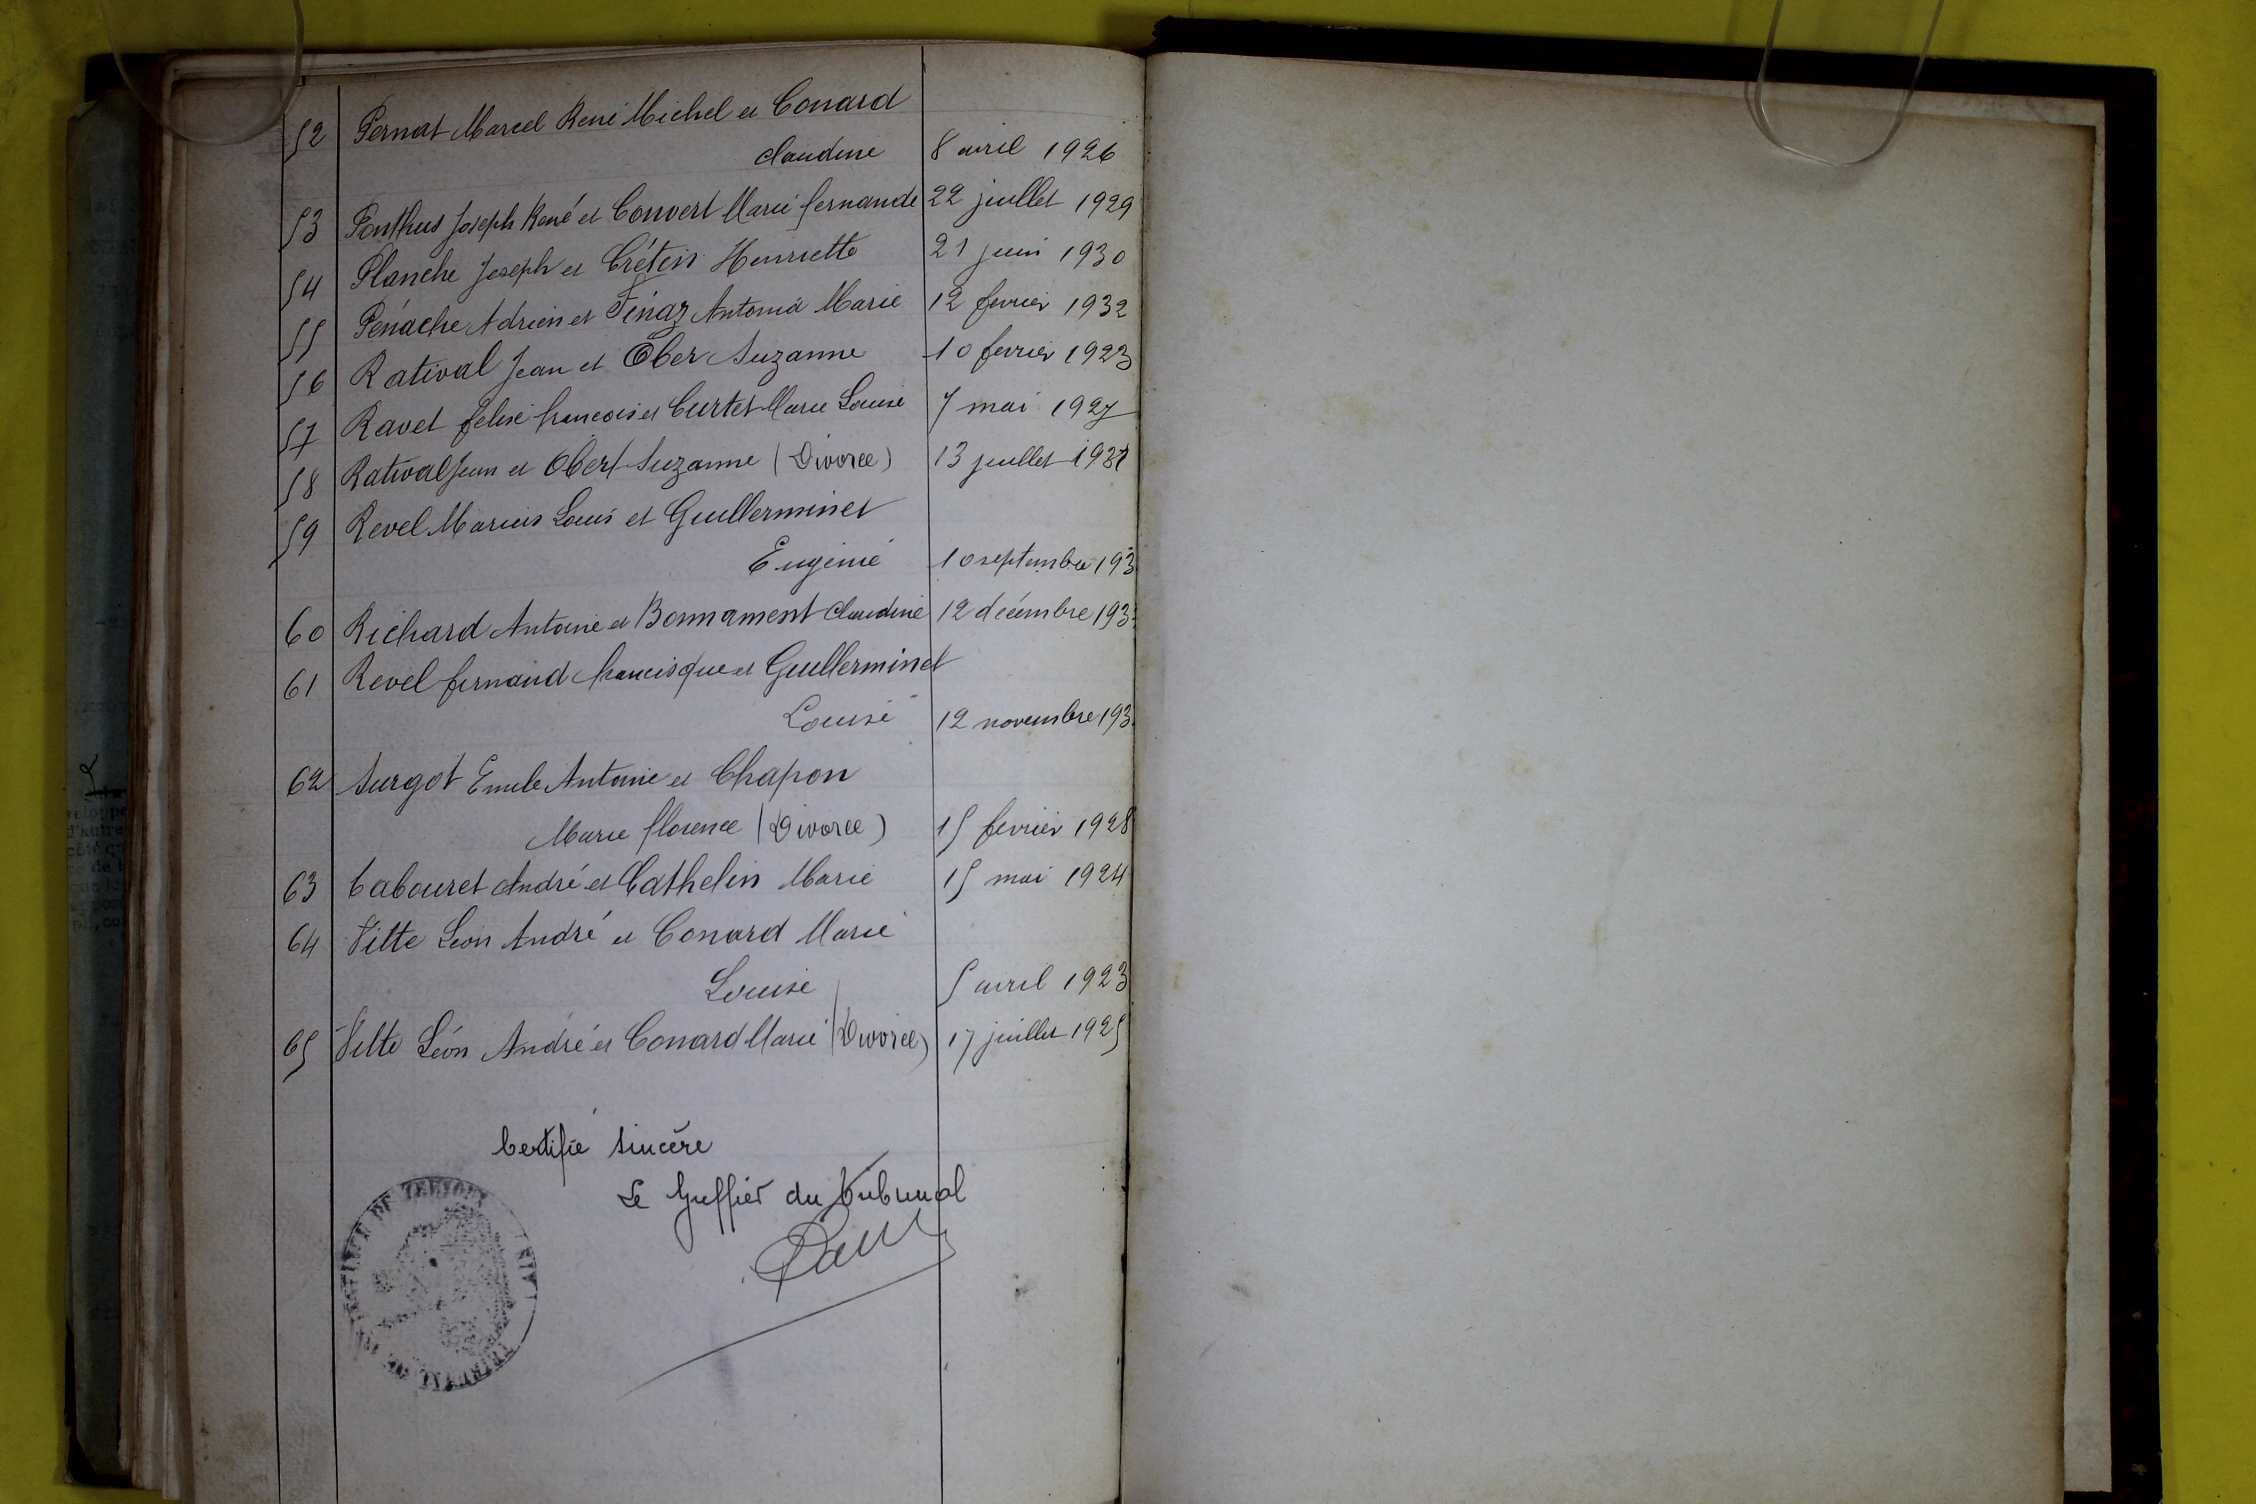 52 Pernat Marcel René Michel et Conard
Claudine 8 avril 1926
53 Ponthus Joseph René et Convert Marie fernande 22 juillet 1929
54 Planche Joseph et Crétin Henriette 21 juin 1930
55 Pénache Adrien et Finaz Antonia Marie 12 fevrier 1932
56 Ratival Jean et Ober Suzanne 10 fevrier 1923
57 Ravet felix francois et Curtet Marie Louise 7 mai 1927
58 Ratival Jean et Obert Suzanne (Divorce) 13 juillet 1931
59 Revel Marius Louis et Guillerminet
Eugénie 10 septembre 193
60 Richard Antoine et Bonnament Claudine 12 décembre 193
61 Revel fernand francisque et Guillerminet
Louise 12 novembre 193
62 Surgot Emile Antoine et Chapon
Marie florence (Divorce) 15 fevrier 1928
63 Tabouret André et Cathelin Marie 15 mai 1924
64 Vitte Léon André et Conard Marie
Louise 5 avril 1923
65 Vitte Léon André et Conard Marie (Divorce) 17 juillet 1925
Certifié sincère
Le Greffier du Tribunal